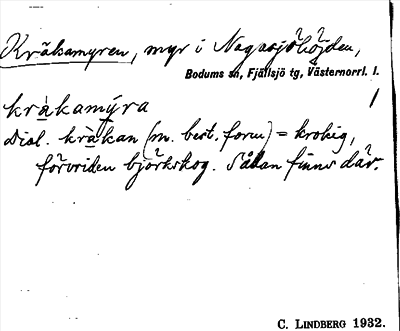 Kråkamyren, myr i Nagasjöhöjden,
Bodums sn, Fjällsjö tg, Västernorrl. l.
kràkamýra
Dial. kràkan (m. best. form) = krokig,
förvriden björkskog. Sådan finns där.
C. LINDBERG 1932.